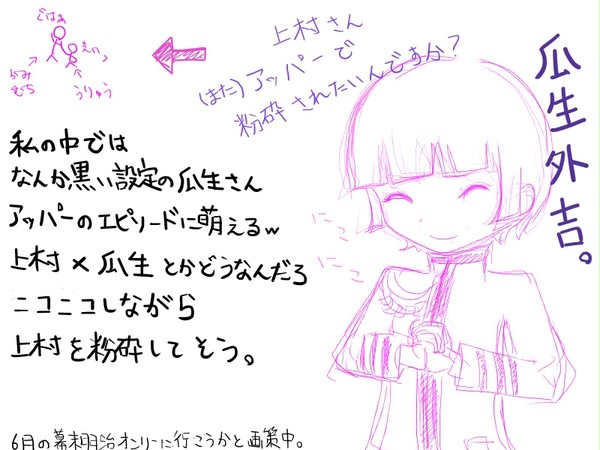 ごはぁ
えいっ
かみ
むら
うりゅう
上村さん
(また)アッパーで
粉砕されたいんですか?
瓜生外吉。
私の中では
なんか黒い設定の瓜生さん
アッパーのエピソードに萌えるw
上村×瓜生とかどうなんだろ
ニコニコしながら
上村を粉砕してそう。
にこ
にこ
6月の幕末明治オンリーに行こうかと画策中。